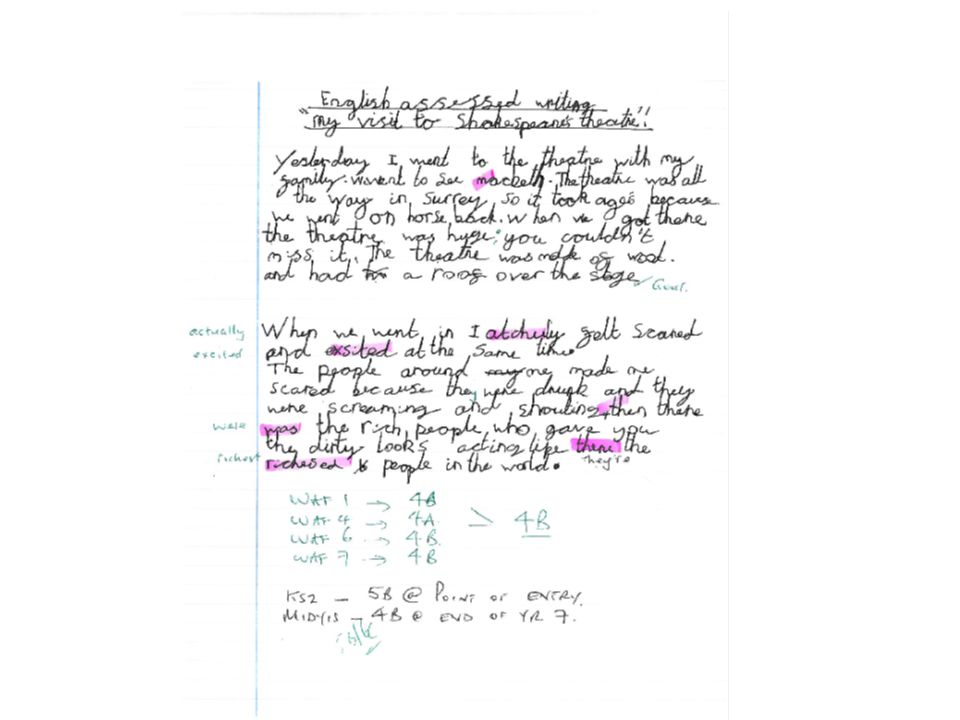 English assessed writing
"my visit to Shakespeare's theatre"!
Yesterday I went to the theatre with my
family. went to see macbeth. The theatre was all
the way in Surrey so it took ages because
we went on horse back. When we got there
the theatre was huge; you couldn't
miss it. The theatre was made of wood.
and had a roof over the stage
Good.
actually
When we went in I atchuly felt scared
excited
and exsited at the same time.
The people around me made me
scared because they were drunk and they
were screaming and shouting, then there
were
was the rich people who gave you
the dirty looks acting like there the
richest
richesed people in the world.
they're
WAF 1 → 4B
WAF 4 → 4A
WAF 6 → 4B
WAF 7 → 4B
> 4B
KS2 - 5B @ POINT OF ENTRY.
MIDYIS - 4B @ END OF YR 7.